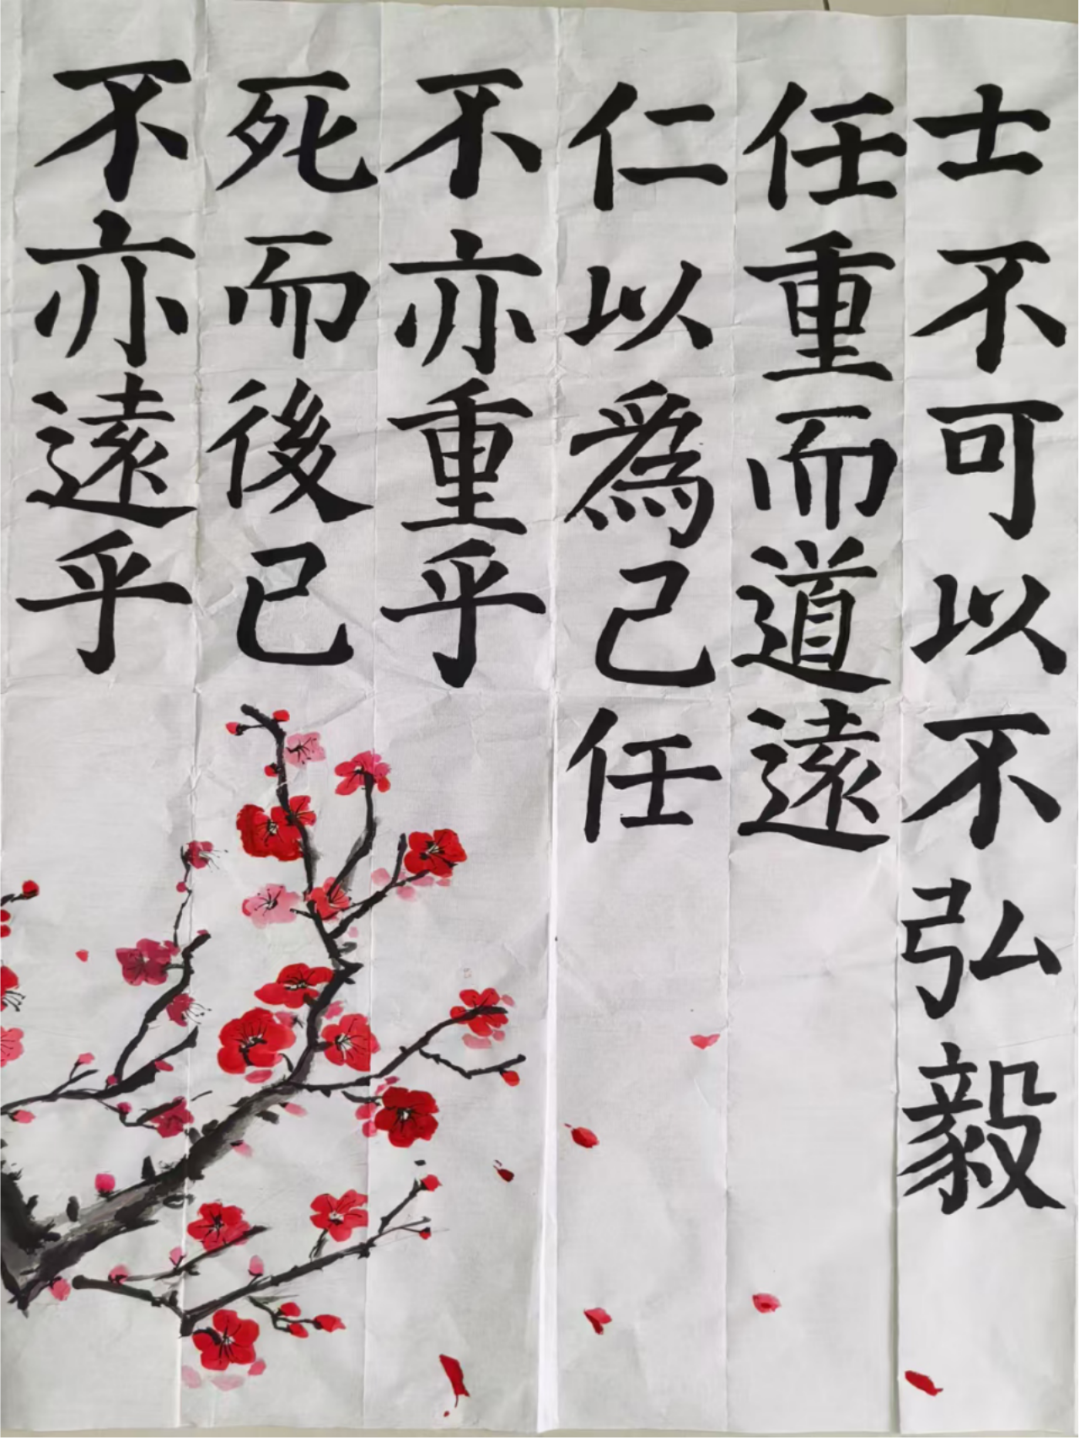 士不可以不弘毅
任重而道遠
仁以爲己任
不亦重乎
死而後已
不亦遠乎